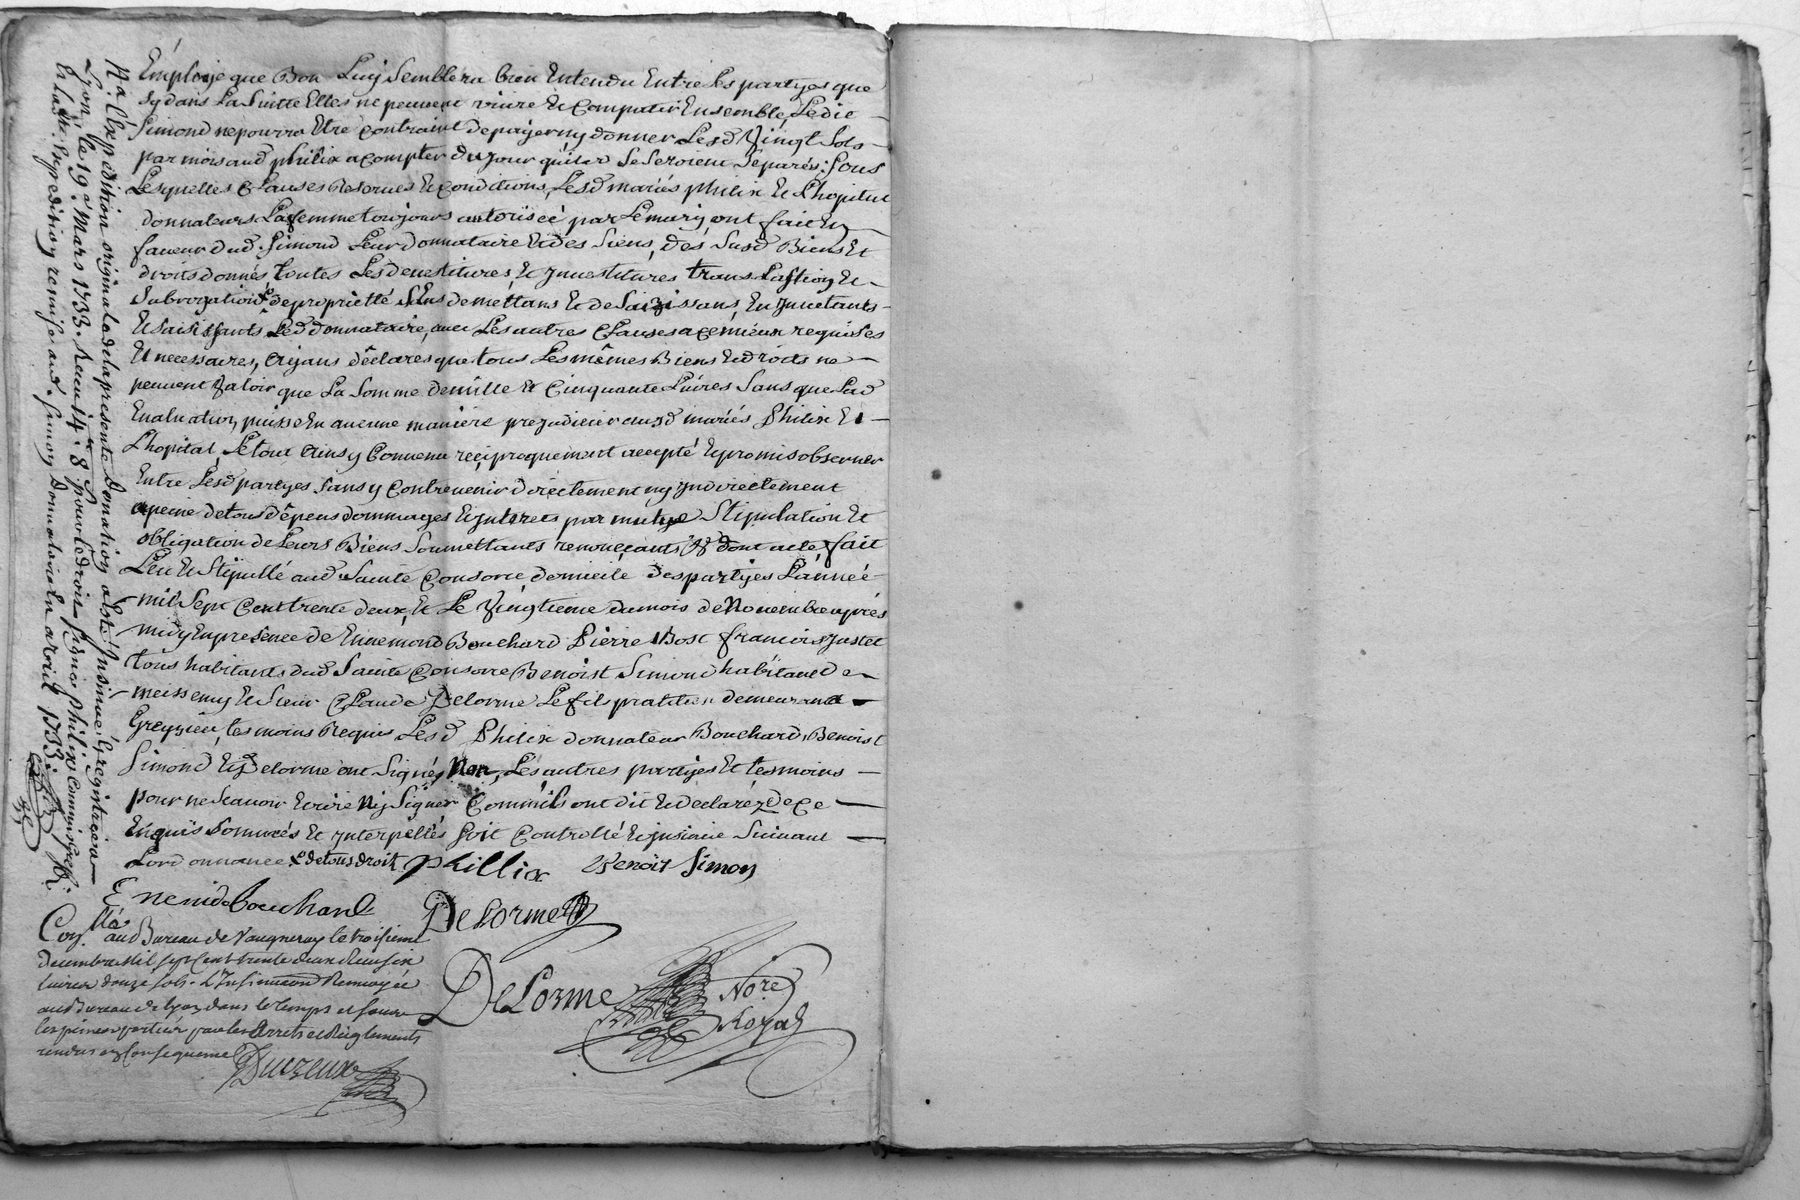 Employe que Bon Luy Semblera bien Entendu Entre les partyes que
sy dans La Suitte Elles ne peuvent vivre Et Compatir Ensemble, Ledit
Simond ne pourra Etre Contraint de payer ny donner Lesd Vingt Sols
par mois aud philix a compter du jour qu'ils Se Seroient Separés; Sous
Lesquelles Clauses Reserves Et Conditions, Lesd mariés philix Et L'hopital
donnateurs La femme toujours autorisée par Le mary ont fait En
faveur dud Simond Leur donnataire Et des Siens, des Susd Biens Et
droits donnés toutes Les devestitures Et Investitures translastion Et
Subrogation de proprietté S'En demettans Et de Saizissans, En Investants
Et Saisissants Led donnataire, avec Les autres Clauses a ce mieux requises
Et necessaires, ayans déclarés que tous Les mêmes Biens Et droits ne
peuvent Valoir que La Somme de mille Et Cinquante Livres Sans que Lad
Evaluation puisse En aucune manière prejudicier ausd mariés Philix Et
L'hopital, Le tout Ainsy Convenu reciproquement accepté Et promis observer
Entre Lesd partyes Sans y Contrevenir directement ny Indirectement
a peine de tous dépens dommages Et Interets par mutuelle Stipulation Et
obligation de Leurs Biens Soumettants renonçants &c dont acte, fait
Leu Et Stipullé aud Sainte Consorce domicile des partyes L'année
mil Sept Cent trente deux, Et Le Vingtieme du mois de Novembre après
midy En presence de Ennemond Bouchard Pierre Bost françois Justet
tous habitants dud Sainte Consorce Benoist Simond habitant de
meissemy Et Sieur Claude Delorme Le fils pratitien demeurant a
Greyzieu, tesmoins Requis Lesd Philix donnateur Bouchard, Benoist
Simond Et Delorme ont Signés, Non, Les autres partyes Et tesmoins
pour ne Scavoir Ecrire Ny Signer Comm'ils ont dit Et declaréz de ce
Enquis Sommés Et Interpellés Soit Controllé Et Insinué Suivant
Lordonnance & de tous droit phillix Benoit Simon
Enemid Bouchard
DeLorme
Con.llé aud Bureau de Vaugneray le troisieme
decembre mil sept Cent trente deux Receu six
livres douze sols. L'Insinuaõn Renvoyée
au Bureau de lyon dans le temps et sous
les peines portées par les Arrets et Reiglements
rendus en Consequence
Ducreux
DeLorme Nore
Royal
N.a L'Expedition originale de la presente Donation a Esté Insinué, & registréee a
Lyon le 19.e Mars 1733. Receu 14.lt 8.s pour le droit, Signé philix Commis Greff.
Et Lad.te Expedition remise aud. Simon Donnataire En avril 1733.